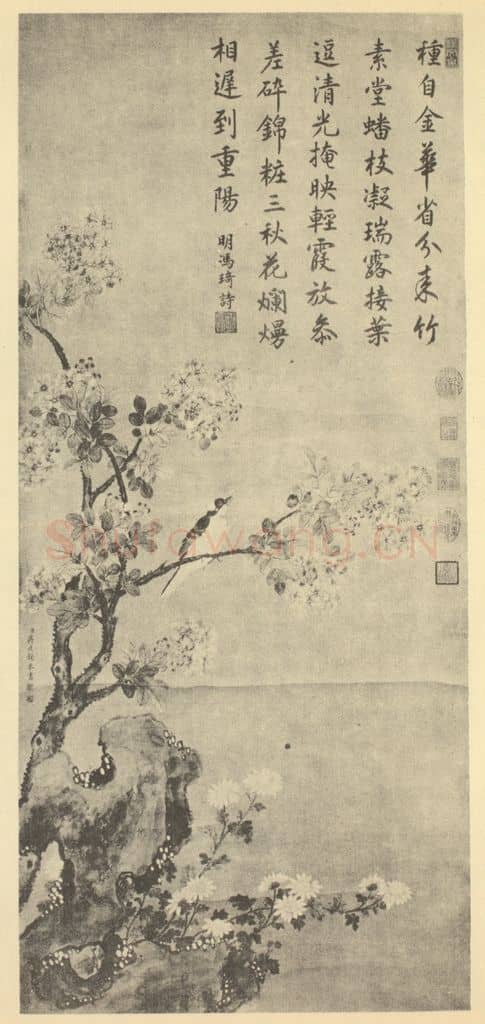 種自金華省分来竹
素堂蟠枝凝瑞露接葉
逗清光掩映輕霞放叅
差砕錦粧三秋花爛熳
相遲到重陽
明馮琦詩
Shufawang.CN